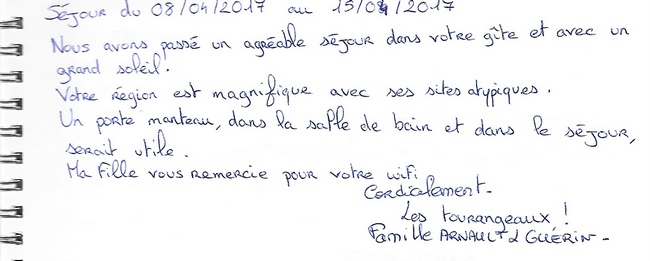 Séjour du 08/04/2017 au 15/04/2017
Nous avons passé un agréable séjour dans votre gîte et avec un
grand soleil.
Votre région est magnifique avec ses sites atypiques.
Un porte manteau, dans la salle de bain et dans le séjour,
serait utile.
Ma fille vous remercie pour votre wifi
Cordialement.
Les tourangeaux !
Famille ARNAULT & GUÉRIN -